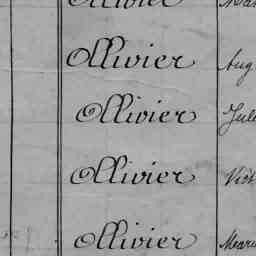 Ollivier
Ollivier Aug
Ollivier Jule
Ollivier Vict
Ollivier Marie